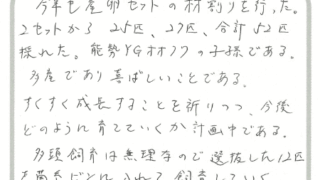 今年も産卵セットの材割りを行った。
2セットから 25匹、27匹、合計52匹
採れた。能勢YGオオクワの子様である。
多産であり喜ばしいことである。
すくすく成長することを祈りつつ、今後
どのように育てていくか計画中である。
多頭飼育は無理なので選抜した12匹
を菌糸ビンに入れて飼育していく